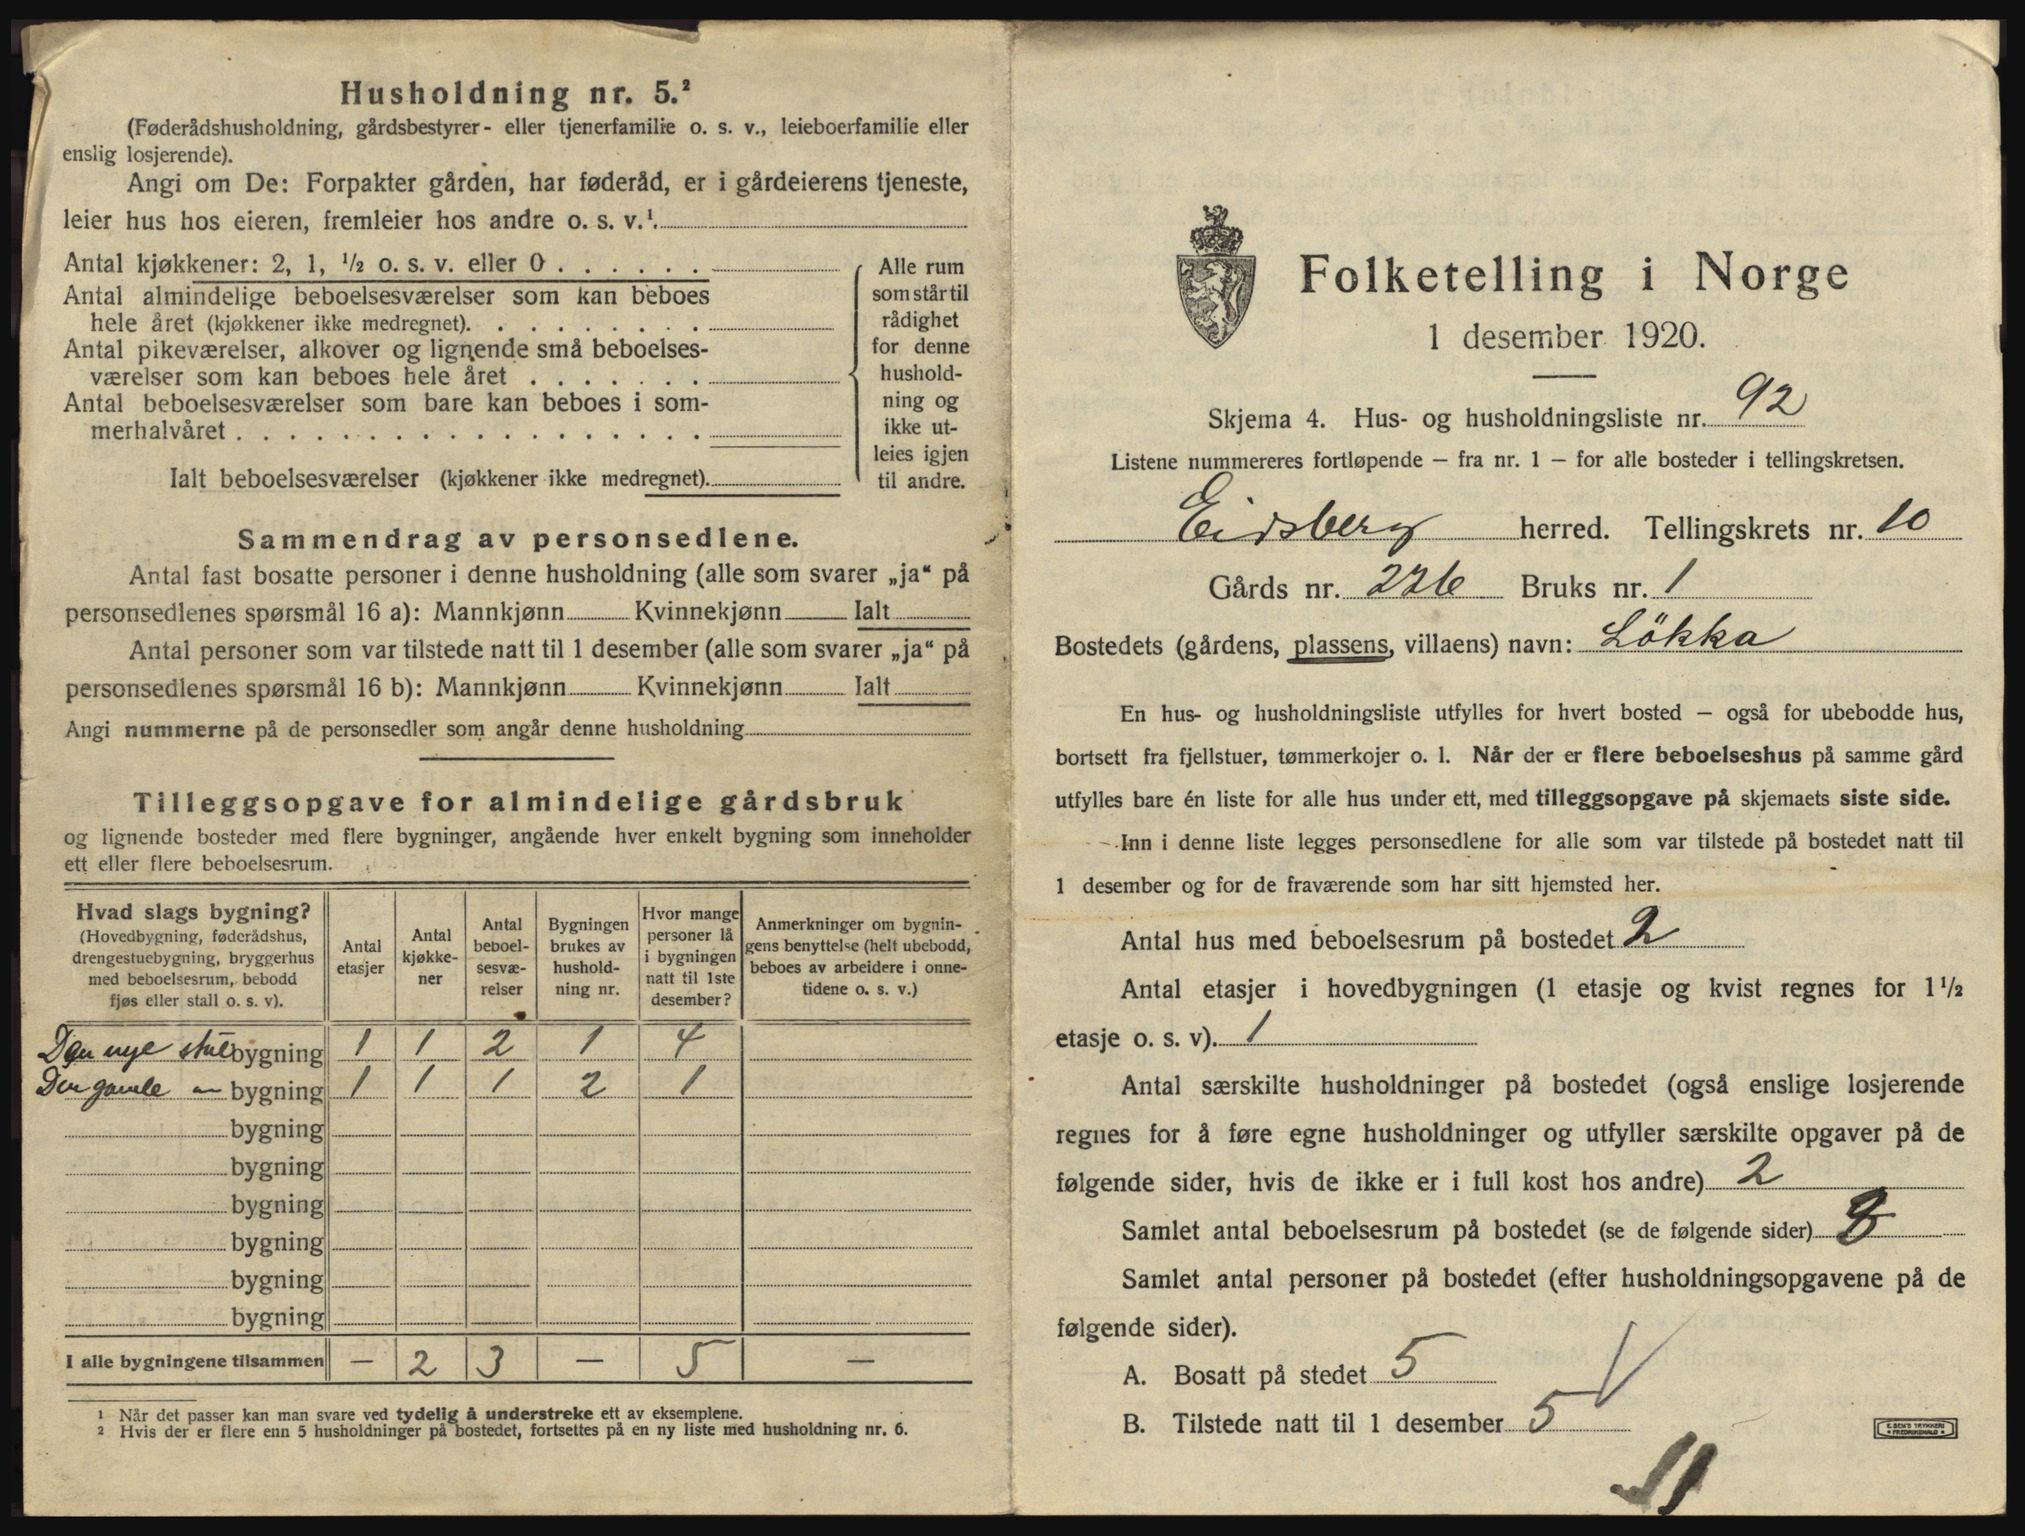 Husholdning nr. 5.²
(Føderådshusholdning, gårdsbestyrer- eller tjenerfamilie o. s. v., leieboerfamilie eller
enslig losjerende).
Angi om De: Forpakter gården, har føderåd, er i gårdeierens tjeneste,
leier hus hos eieren, fremleier hos andre o. s. v.¹.
Antal kjøkkener: 2, 1, ½ o. s. v. eller 0 . . . . . .
Antal almindelige beboelsesværelser som kan beboes
hele året (kjøkkener ikke medregnet). . . . . . . . .
Antal pikeværelser, alkover og lignende små beboelses-
værelser som kan beboes hele året . . . . . . .
Antal beboelsesværelser som bare kan beboes i som-
merhalvåret . . . . . . . . . . . . . . . . . .
Ialt beboelsesværelser (kjøkkener ikke medregnet).
Alle rum
som står til
rådighet
for denne
hushold-
ning og
ikke ut-
leies igjen
til andre.
Sammendrag av personsedlene.
Antal fast bosatte personer i denne husholdning (alle som svarer „ja“ på
personsedlenes spørsmål 16 a): Mannkjønn Kvinnekjønn Ialt
Antal personer som var tilstede natt til 1 desember (alle som svarer „ja“ på
personsedlenes spørsmål 16 b): Mannkjønn Kvinnekjønn Ialt
Angi nummerne på de personsedler som angår denne husholdning
Tilleggsopgave for almindelige gårdsbruk
og lignende bosteder med flere bygninger, angående hver enkelt bygning som inneholder
ett eller flere beboelsesrum.
Hvad slags bygning?
(Hovedbygning, føderådshus,
drengestuebygning, bryggerhus
med beboelsesrum, bebodd
fjøs eller stall o. s. v).
Antal
etasjer
Antal
kjøkke-
ner
Antal
beboel-
sesvæ-
relser
Bygningen
brukes av
hushold-
ning nr.
Hvor mange
personer lå
i bygningen
natt til 1ste
desember?
Anmerkninger om bygnin-
gens benyttelse (helt ubebodd,
beboes av arbeidere i onne-
tidene o. s. v.)
Den nye stuebygning 1 1 2 1 4
Den gamle — bygning 1 1 1 2 1
bygning
bygning
bygning
bygning
bygning
bygning
I alle bygningene tilsammen — 2 3 — 5 —
¹ Når det passer kan man svare ved tydelig å understreke ett av eksemplene.
² Hvis der er flere enn 5 husholdninger på bostedet, fortsettes på en ny liste med husholdning nr. 6.
Folketelling i Norge
1 desember 1920.
Skjema 4. Hus- og husholdningsliste nr. 92
Listene nummereres fortløpende – fra nr. 1 – for alle bosteder i tellingskretsen.
Eidsberg herred. Tellingskrets nr. 10
Gårds nr. 226 Bruks nr. 1
Bostedets (gårdens, plassens, villaens) navn: Løkka
En hus- og husholdningsliste utfylles for hvert bosted – også for ubebodde hus,
bortsett fra fjellstuer, tømmerkojer o. l. Når der er flere beboelseshus på samme gård
utfylles bare én liste for alle hus under ett, med tilleggsopgave på skjemaets siste side.
Inn i denne liste legges personsedlene for alle som var tilstede på bostedet natt til
1 desember og for de fraværende som har sitt hjemsted her.
Antal hus med beboelsesrum på bostedet 2
Antal etasjer i hovedbygningen (1 etasje og kvist regnes for 1½
etasje o. s. v). 1
Antal særskilte husholdninger på bostedet (også enslige losjerende
regnes for å føre egne husholdninger og utfyller særskilte opgaver på de
følgende sider, hvis de ikke er i full kost hos andre) 2
Samlet antal beboelsesrum på bostedet (se de følgende sider)
Samlet antal personer på bostedet (efter husholdningsopgavene på de
følgende sider).
A. Bosatt på stedet 5
B. Tilstede natt til 1 desember 5
E. SEM'S TRYKKERI
FREDRIKSHALD